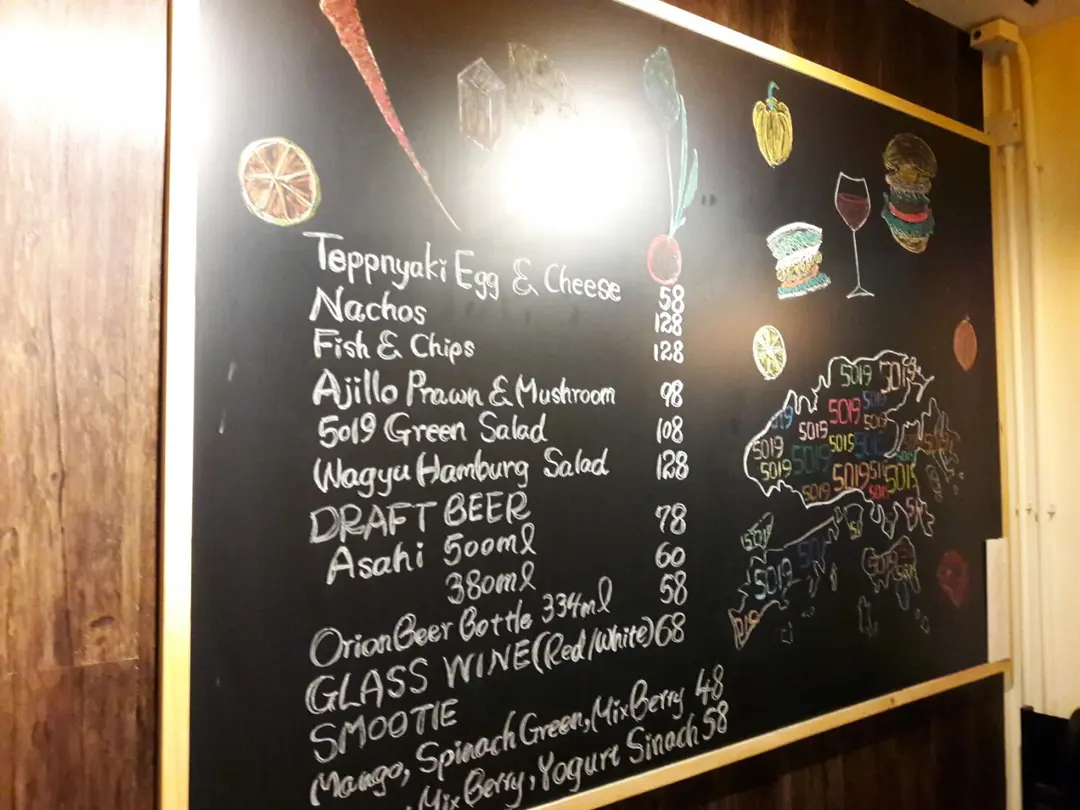 Teppnyaki Egg & Cheese 58
Nachos 128
Fish & Chips 128
Ajillo Prawn & Mushroom 98
5019 Green Salad 108
Wagyu Hamburg Salad 128
DRAFT BEER
Asahi 500ml 78
380ml 60
Orion Beer Bottle 334ml 58
GLASS WINE (Red/White) 68
SMOOTIE
Mango, Spinach Green, Mix Berry 48
, Mix Berry, Yogurt Sinach 58
5019 5019
5019 5019 5019
5019 5019 5019
5019 5019 5019 5019
5019 5019 5019 5019
5019